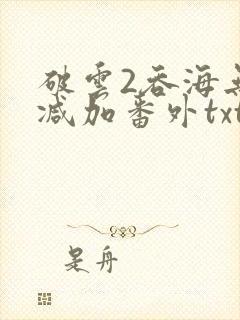 破雲2吞海無
减加番外txt
是舟